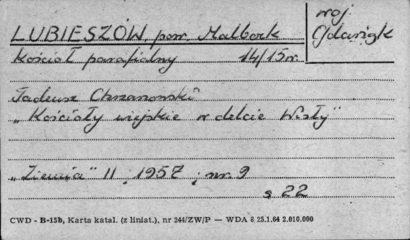 LUBIESZÓW, pow. Malbork
woj
Gdańsk
Kościół parafialny 14/15 w.
Tadeusz Chrzanowski
„Kościoły wiejskie w delcie Wisły"
„Ziemia" II, 1957, nr. 9
s 22
CWD - B-15b, Karta katal. (z liniat.), nr 244/ZW/P — WDA z 25.1.64 2.010.000